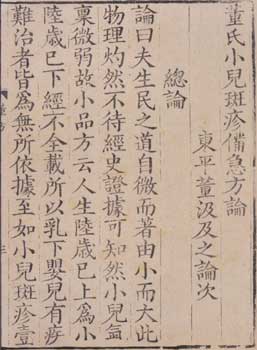 董氏小兒斑疹備急方論
東平董汲及之論次
總論
論曰夫生民之道自微而著由小而大此
物理灼然不待經史證據可知然小兒氣
稟微弱故小品方云人生陸歲已上爲小
陸歲已下經不全載所以乳下嬰兒有疾
難治者皆爲無所依據至如小兒斑疹壹